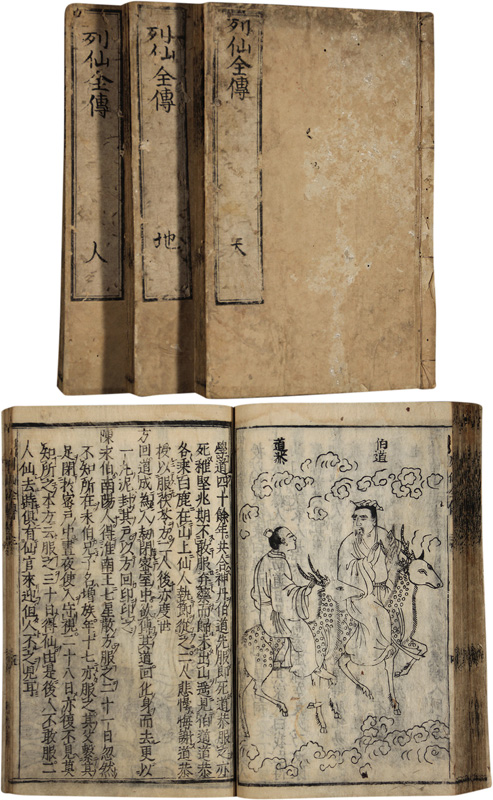 列仙全傳
天
列仙全傳
地
列仙全傳
人
伯道
道恭
學道四十餘年共合神丹伯道先服即死道恭服之亦
死稚堅兆期不敢服弃藥而歸未出山忽見伯道道恭
各乘白鹿在山上仙人執節從之二人悲愕悔謝道恭
授以服茯苓方二人後亦度世
方回道成爲人刼閉密室中求傳其道回化身而去更以
一丸泥封其戶以方回印印之
陳永伯南陽人得淮南王七星散方服之二十一日忽然
不知所在永伯兄子名增族年十七亦服之其父繫其
足閉於密戶中晝夜使人守視二十八日亦復不見莫
知所之本方云服之三十日得仙由是後人不敢服二
人仙去時俱有仙官來迎但人不之見耳